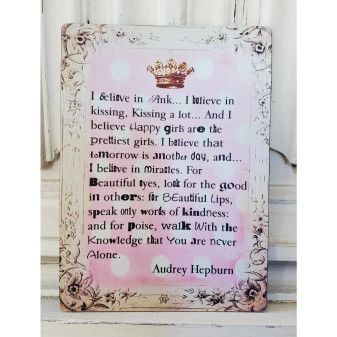 I believe in Pink... I believe in
kissing, Kissing a lot... And I
believe Happy girls are the
prettiest girls. I believe that
tomorrow is another day, and...
I believe in miracles. For
Beautiful Eyes, look for the good
in others: for BEautiful Lips,
speak only words of kindness:
and for poise, walk With the
Knowledge that You are never
Alone.
Audrey Hepburn